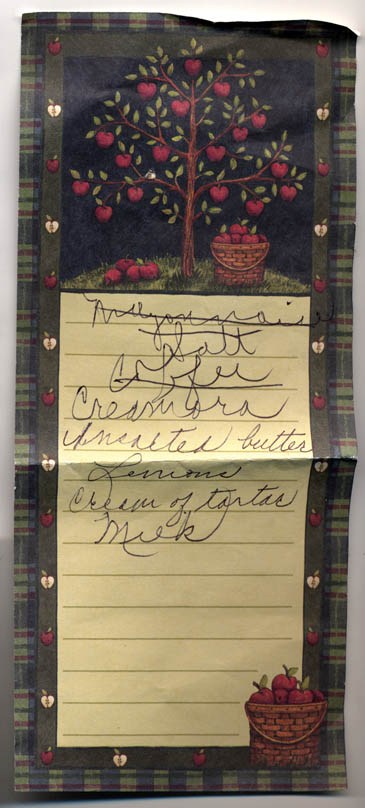 Mayonnaise
Salt
Coffee
Creamora
Unsalted butter
Lemons
Cream of tartar
Milk